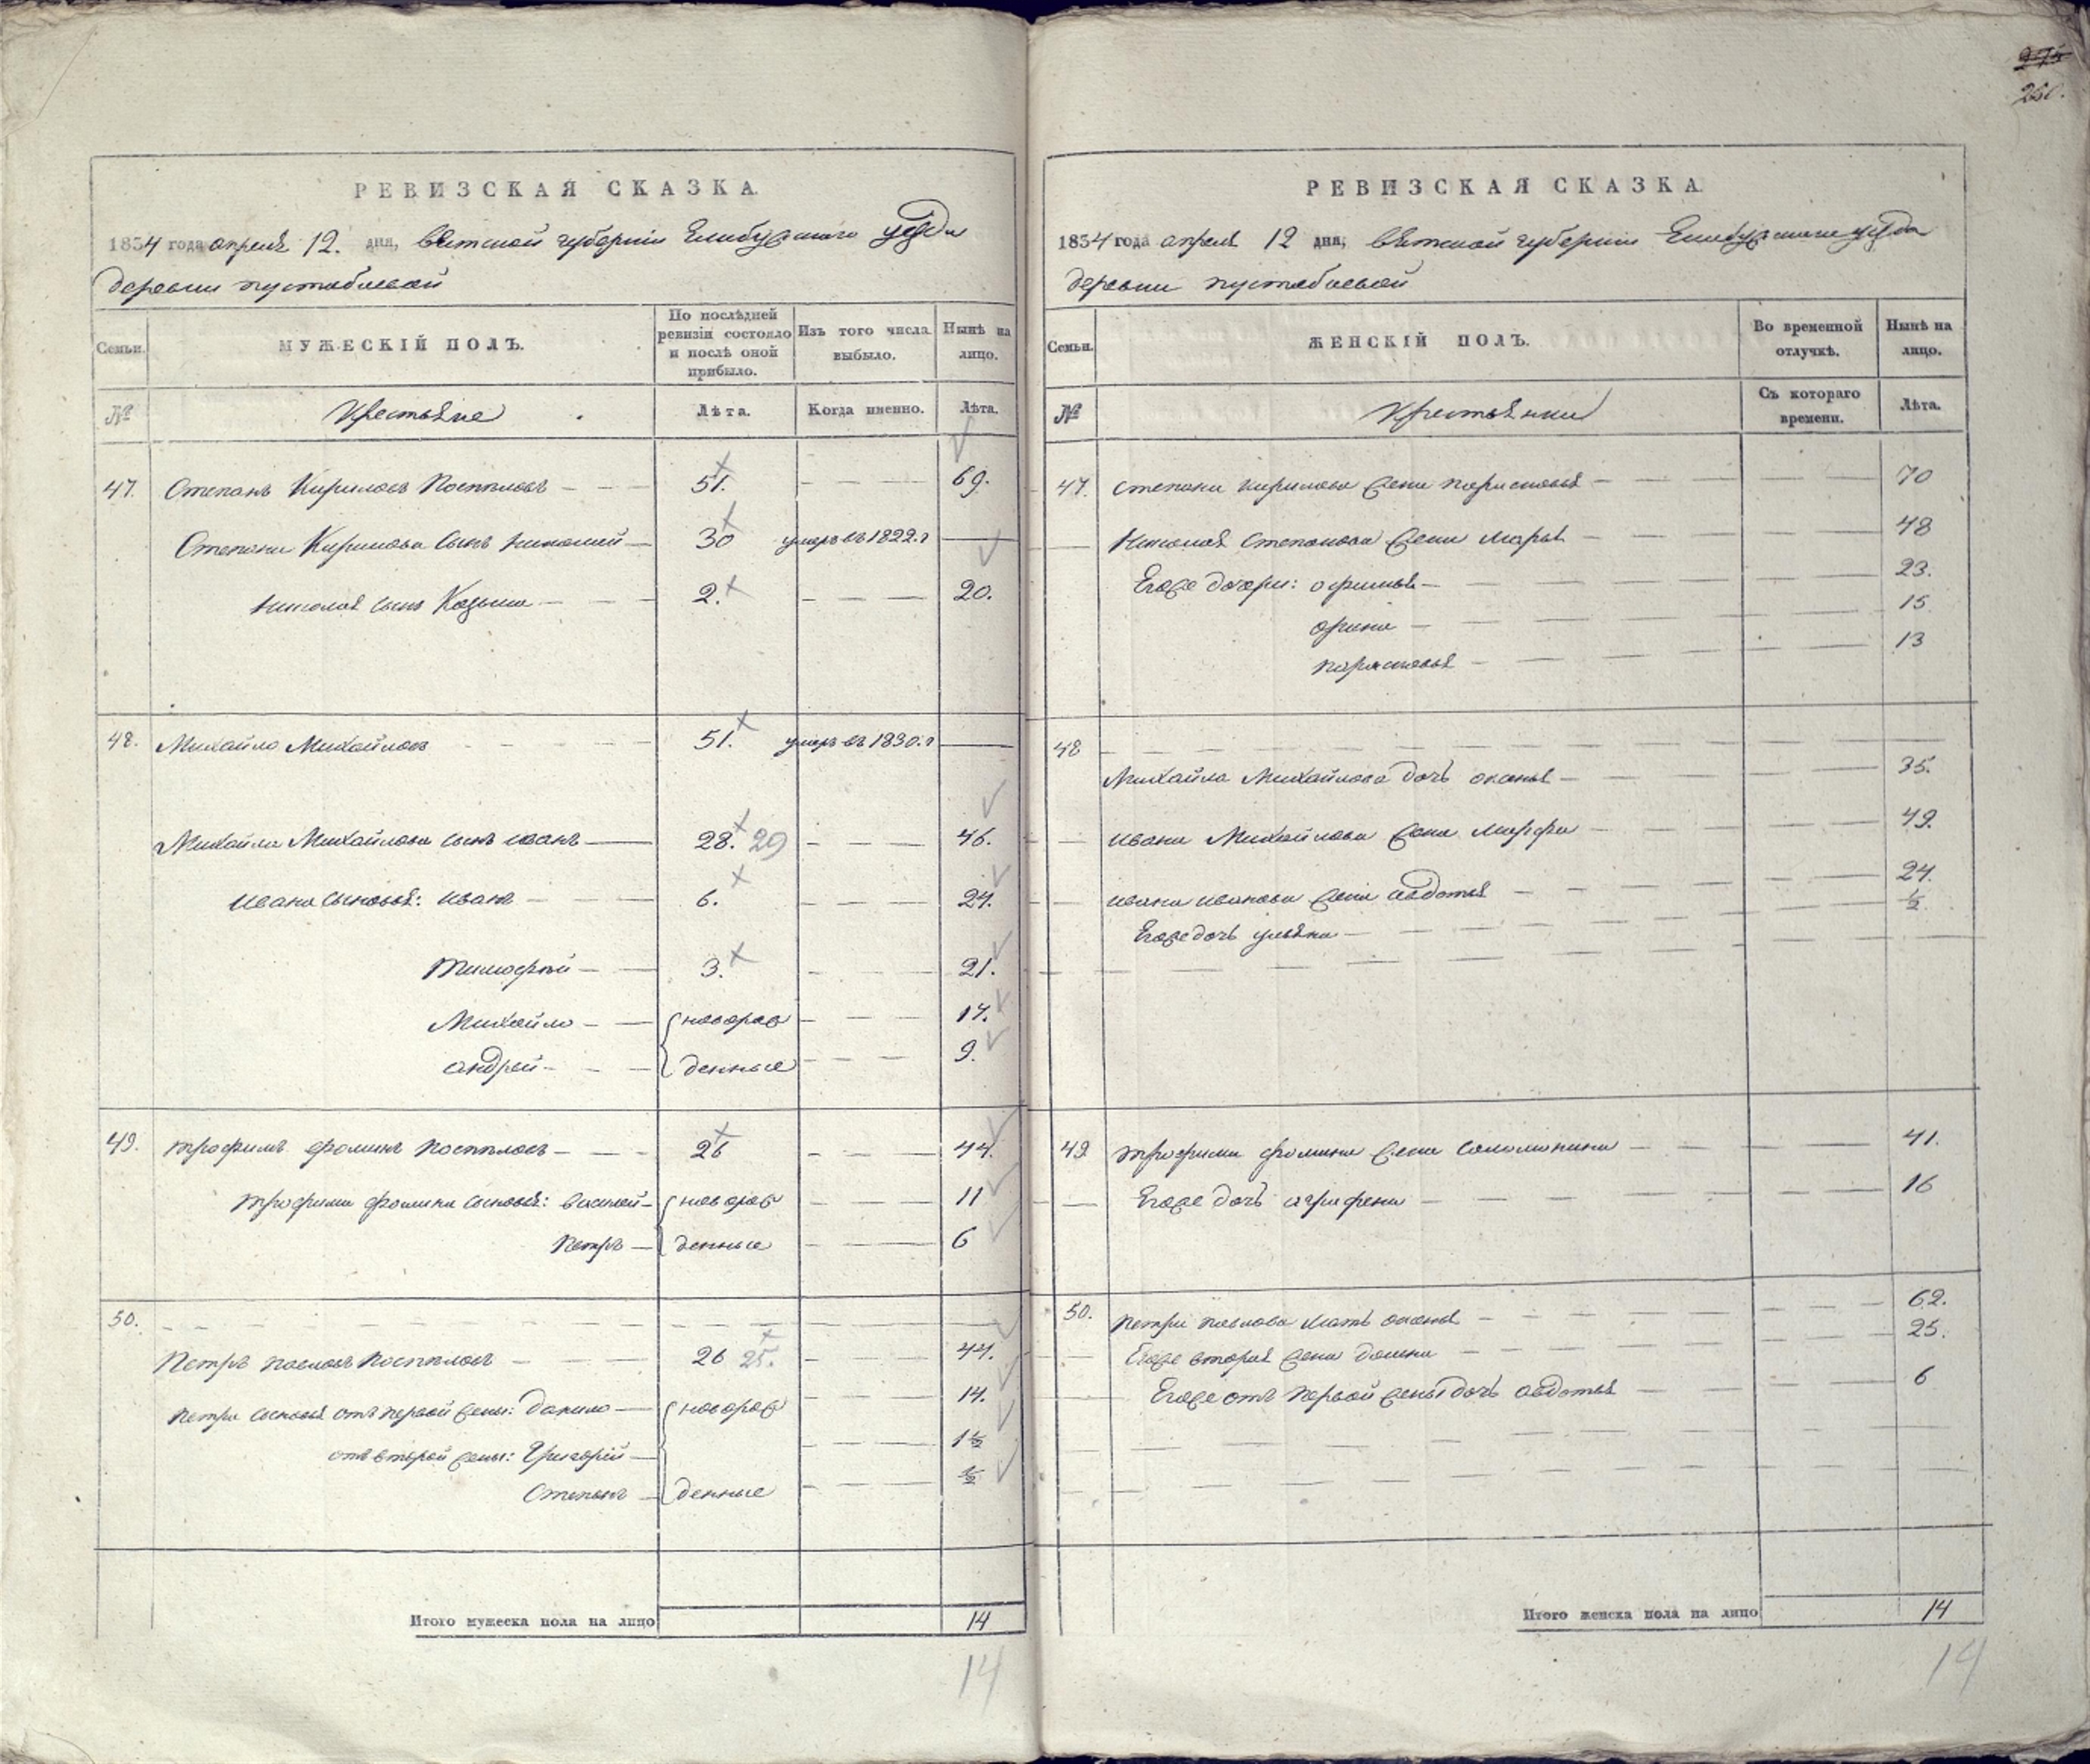 275
260.
РЕВИЗСКАЯ СКАЗКА.
1834 года апреля 12. дня, вятской губернии Елабужского уезда
деревни пустобаевой
Семьи.
МУЖЕСКІЙ ПОЛЪ.
По послѣдней ревизіи состояло и послѣ оной прибыло.
Изъ того числа выбыло.
Нынѣ на лицо.
№
Крестьяне
Лѣта.
Когда именно.
Лѣта.
47. Степанъ Кириловъ Поспѣловъ 51. 69.
Степана Кирилова сынъ николай 30 умеръ въ 1822. г
николая сынъ Козьма 2. 20.
48. Михайло Михайловъ 51. умеръ въ 1830. г
Михайла Михайлова сынъ иванъ 28. 29 46.
ивана сыновья: иванъ 6. 24.
Тимофей 3. 21.
Михайло новорож 17.
андрей денные 9.
49. трофимъ фоминъ Поспѣловъ 26 44.
трофима фомина сыновья: василей новорож 11
Петръ денные 6
50.
Петръ павловъ Поспѣловъ 26 25. 44.
петра сыновья отъ первой жены: данило новорож 14.
отъ второй жены: Григорій 1½
Степанъ денные ½
Итого мужеска пола на лицо 14
14
РЕВИЗСКАЯ СКАЗКА.
1834 года апреля 12 дня, вятской губернии Елабужского уезда
деревни пустобаевой
Семьи.
ЖЕНСКІЙ ПОЛЪ.
Во временной отлучкѣ.
Нынѣ на лицо.
№
Крестьянки
Съ котораго времени.
Лѣта.
47. степана кирилова жена парасковья 70
николая степанова жена марья 48
Егоже дочери: офимья 23.
орина 15
парасковья 13
48
Михайла Михайлова дочь оксинья 35.
ивана Михайлова жена марфа 49.
ивана иванова жена авдотья 24.
Егоже дочь ульяна ½
49 трофима фомина жена соломонида 41.
Егоже дочь агрифена 16
50. петра павлова мать оксинья 62.
Егоже вторая жена домна 25.
Егоже отъ первой жены дочь авдотья 6
Итого женска пола на лицо 14
14